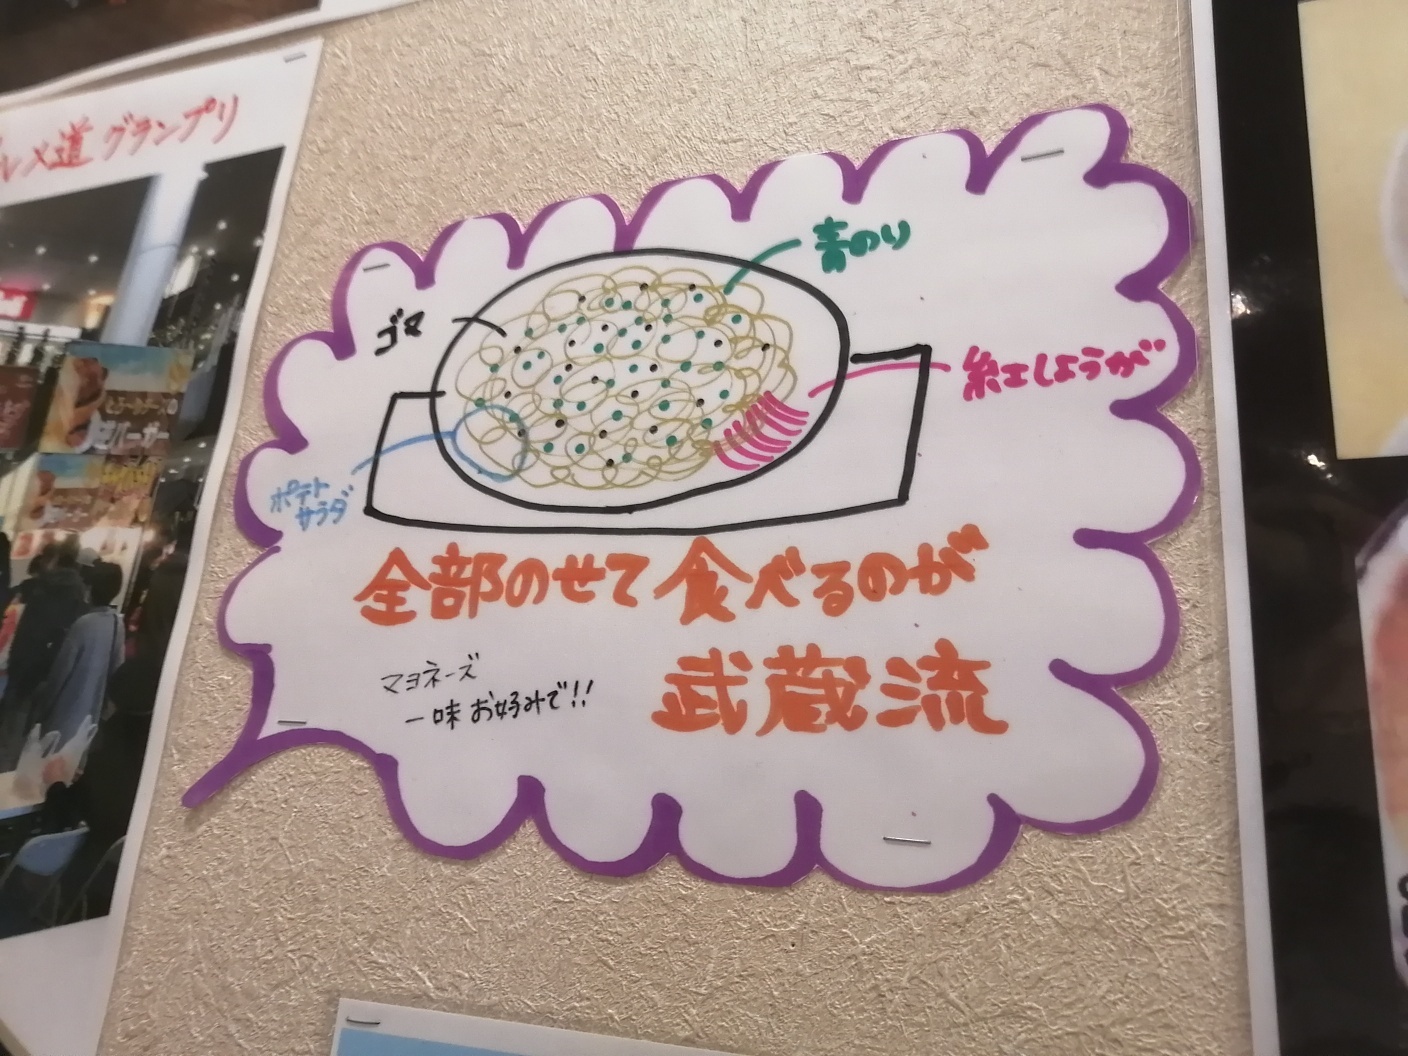 レメ道グランプリ
青のり
ゴマ
紅しょうが
ポテト
サラダ
全部のせて食べるのが
武蔵流
マヨネーズ
一味お好みで!!
バーガー